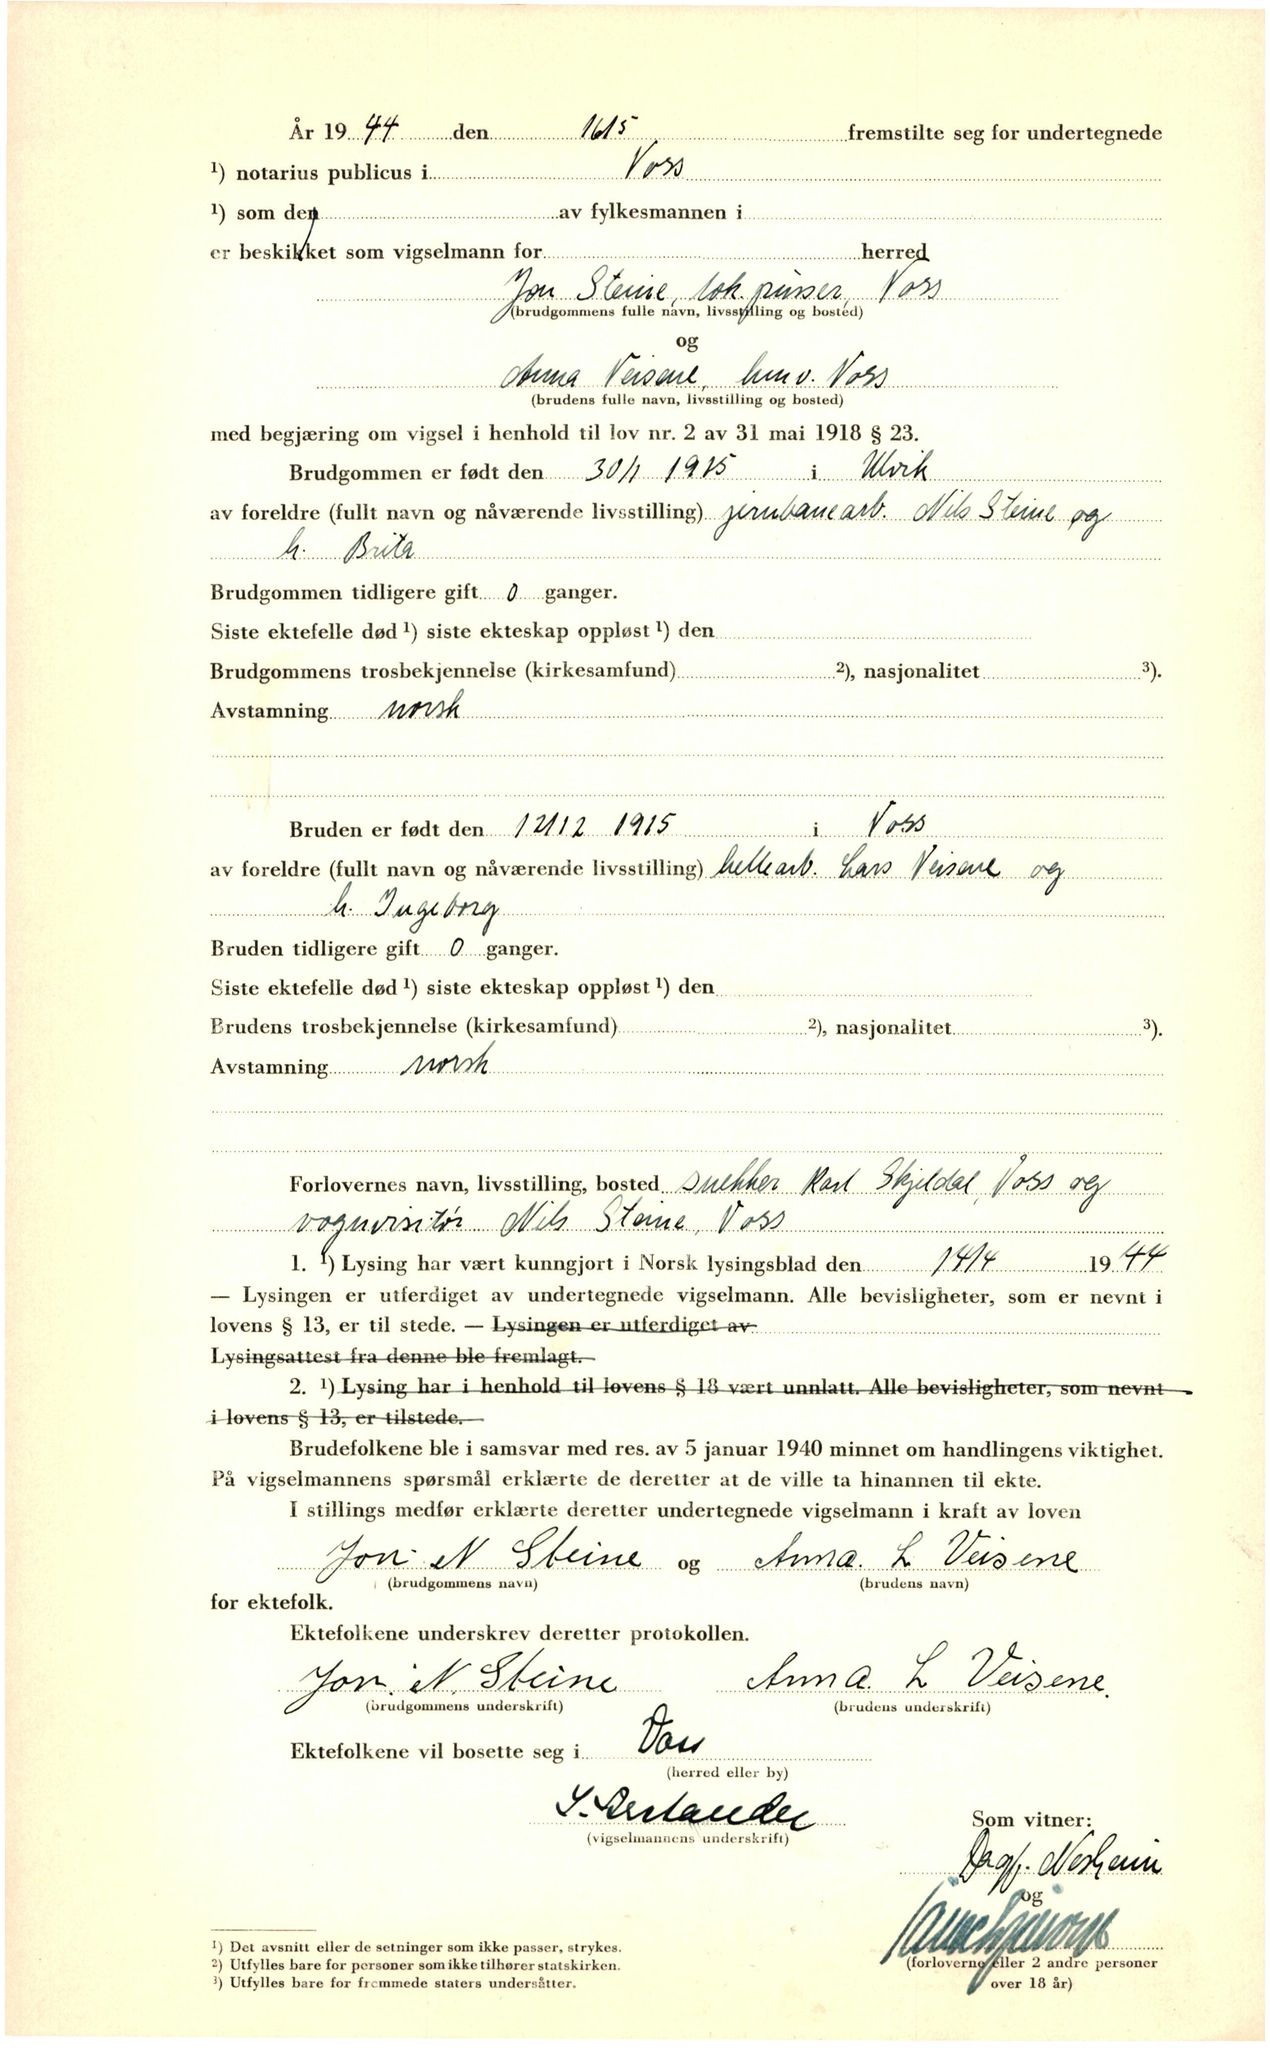 År 1944 den 16/5 fremstilte seg for undertegnede
¹) notarius publicus i Voss
¹) som den av fylkesmannen i
er beskikket som vigselmann for herred
Jon Steine, lok.pusser, Voss
(brudgommens fulle navn, livsstilling og bosted)
og
Anna Veisene, hmv. Voss
(brudens fulle navn, livsstilling og bosted)
med begjæring om vigsel i henhold til lov nr. 2 av 31 mai 1918 § 23.
Brudgommen er født den 30/1 1915 i Ulvik
av foreldre (fullt navn og nåværende livsstilling) jernbanearb. Nils Steine og
h. Brita
Brudgommen tidligere gift 0 ganger.
Siste ektefelle død ¹) siste ekteskap oppløst ¹) den
Brudgommens trosbekjennelse (kirkesamfund) ²), nasjonalitet ³).
Avstamning norsk
Bruden er født den 12/12 1915 i Voss
av foreldre (fullt navn og nåværende livsstilling) hellearb. Lars Veisene og
h. Ingeborg
Bruden tidligere gift 0 ganger.
Siste ektefelle død ¹) siste ekteskap oppløst ¹) den
Brudens trosbekjennelse (kirkesamfund) ²), nasjonalitet ³).
Avstamning norsk
Forlovernes navn, livsstilling, bosted snekker Karl Skjeldal, Voss og
vognvisitør Nils Steine, Voss
1. ¹) Lysing har vært kunngjort i Norsk lysingsblad den 14/4 1944
— Lysingen er utferdiget av undertegnede vigselmann. Alle bevisligheter, som er nevnt i
lovens § 13, er til stede. — Lysingen er utferdiget av
Lysingsattest fra denne ble fremlagt.
2. ¹) Lysing har i henhold til lovens § 18 vært unnlatt. Alle bevisligheter, som nevnt
i lovens § 13, er tilstede.
Brudefolkene ble i samsvar med res. av 5 januar 1940 minnet om handlingens viktighet.
På vigselmannens spørsmål erklærte de deretter at de ville ta hinannen til ekte.
I stillings medfør erklærte deretter undertegnede vigselmann i kraft av loven
Jon N Steine og Anna. L Veisene
(brudgommens navn) (brudens navn)
for ektefolk.
Ektefolkene underskrev deretter protokollen.
Jon. N. Steine Anna. L Veisene.
(brudgommens underskrift) (brudens underskrift)
Ektefolkene vil bosette seg i Voss
(herred eller by)
(vigselmannens underskrift)
Som vitner:
Dagf. Nesheim
og
(forloverne eller 2 andre personer
over 18 år)
¹) Det avsnitt eller de setninger som ikke passer, strykes.
²) Utfylles bare for personer som ikke tilhører statskirken.
³) Utfylles bare for fremmede staters undersåtter.